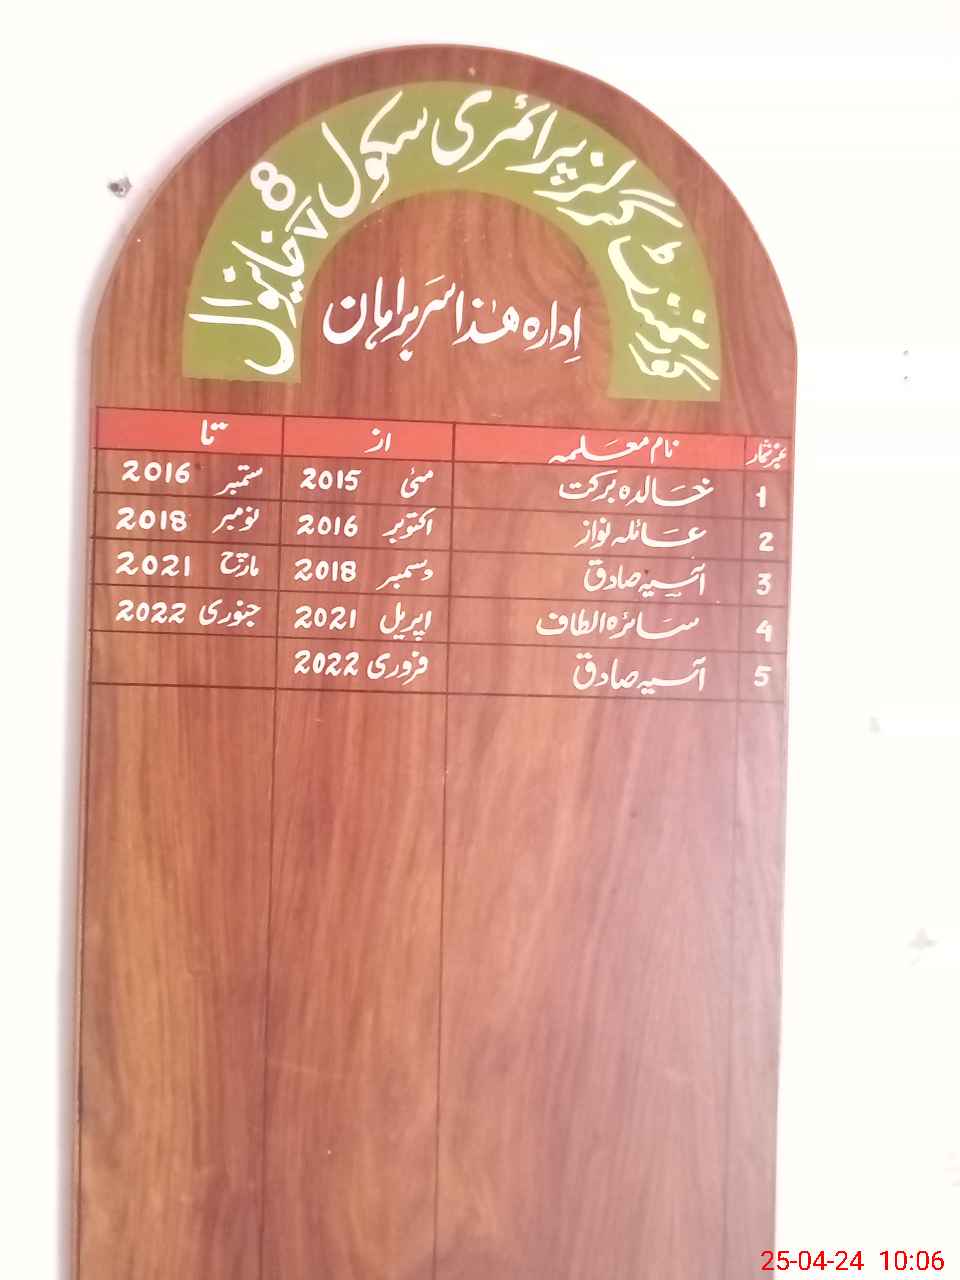 گورنمنٹ گرلز پرائمری سکول 8/V خانیوال
اِدارہ ھٰذا سربراہان
نمبرشمار نام معلمہ از تا
1 خالدہ برکت مئی 2015 ستمبر 2016
2 عائلہ نواز اکتوبر 2016 نومبر 2018
3 آسیہ صادق دسمبر 2018 مارچ 2021
4 سائرہ الطاف اپریل 2021 جنوری 2022
5 آسیہ صادق فروری 2022
25-04-24 10:06